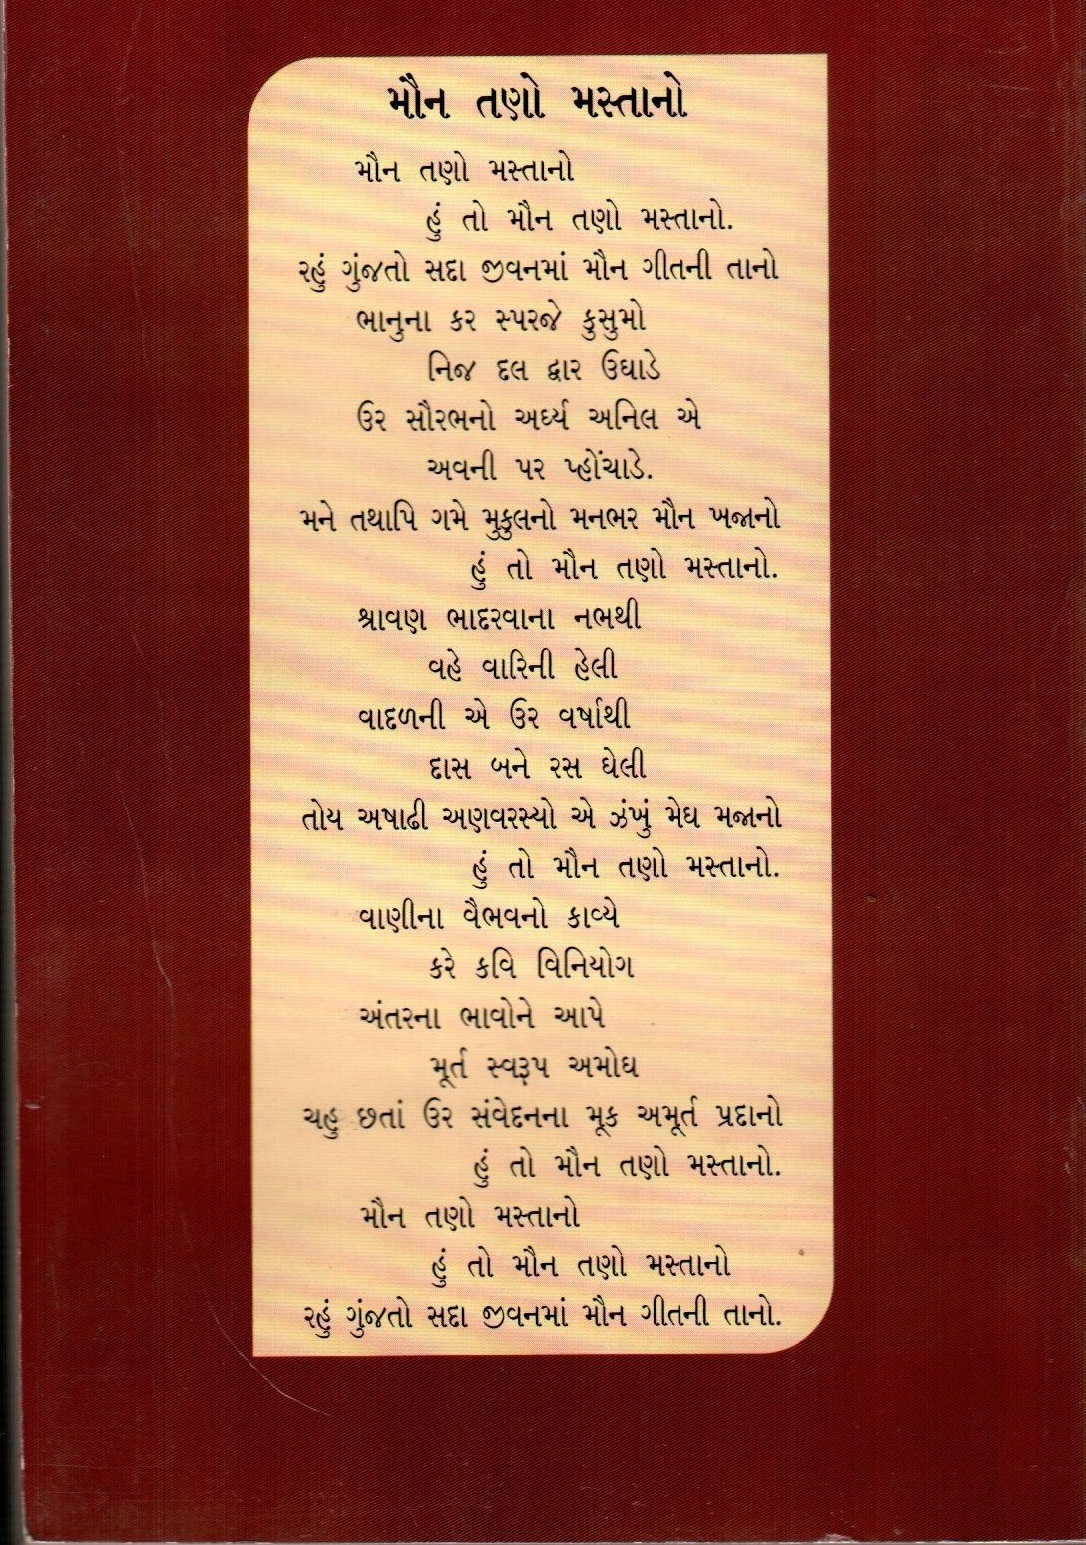 મૌન તણો મસ્તાનો
મૌન તણો મસ્તાનો
હું તો મૌન તણો મસ્તાનો.
રહું ગુંજતો સદા જીવનમાં મૌન ગીતની તાનો
ભાનુના કર સ્પરજે કુસુમો
નિજ દલ દ્વાર ઉઘાડે
ઉર સૌરભનો અર્ઘ્ય અનિલ એ
અવની પર પ્હોંચાડે.
મને તથાપિ ગમે મુકુલનો મનભર મૌન ખજાનો
હું તો મૌન તણો મસ્તાનો.
શ્રાવણ ભાદરવાના નભથી
વહે વારિની હેલી
વાદળની એ ઉર વર્ષાથી
દાસ બને રસ ઘેલી
તોય અષાઢી અણવરસ્યો એ ઝંખું મેઘ મજાનો
હું તો મૌન તણો મસ્તાનો.
વાણીના વૈભવનો કાવ્યે
કરે કવિ વિનિયોગ
અંતરના ભાવોને આપે
મૂર્ત સ્વરૂપ અમોઘ
ચહુ છતાં ઉર સંવેદનના મૂક અમૂર્ત પ્રદાનો
હું તો મૌન તણો મસ્તાનો.
મૌન તણો મસ્તાનો
હું તો મૌન તણો મસ્તાનો
રહું ગુંજતો સદા જીવનમાં મૌન ગીતની તાનો.